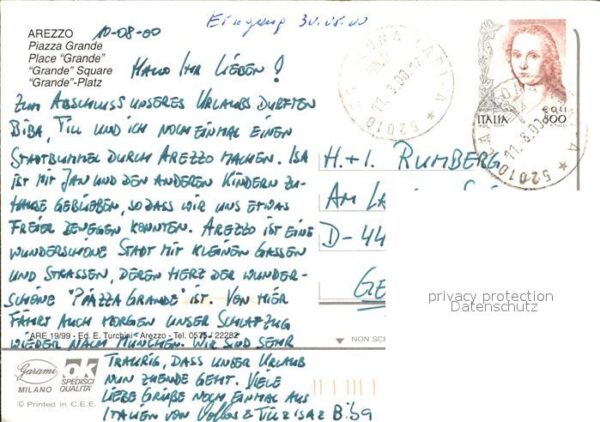 AREZZO
Piazza Grande
Place "Grande"
"Grande" Square
"Grande"-Platz
10-08-00
Eingang 30.08.00
HALLO IHR LIEBEN!
ZUM ABSCHLUSS UNSERES URLAUBS DURFTEN
BIBA, TILL UND ICH NOCH EINMAL EINEN
STADTBUMMEL DURCH AREZZO MACHEN. ISA
IST MIT JAN UND DEN ANDEREN KINDERN ZU-
HAUSE GEBLIEBEN, SO DASS WIR UNS ETWAS
FREIER BEWEGEN KONNTEN. AREZZO IST EINE
WUNDERSCHÖNE STADT MIT KLEINEN GASSEN
UND STRASSEN, DEREN HERZ DER WUNDER-
SCHÖNE "PIAZZA GRANDE" IST. VON HIER
FÄHRT AUCH MORGEN UNSER SCHLAFZUG
WIEDER NACH MÜNCHEN. WIR SIND SEHR
TRAURIG, DASS UNSER URLAUB
NUN ZUENDE GEHT. VIELE
LIEBE GRÜSSE NOCH EINMAL AUS
ITALIEN VON
& Biba
ARE 19/99 - Ed. E. Turchini - Arezzo - Tel. 0575/ 22282
Garami
MILANO
ok
SPEDISCI
QUALITÀ
© Printed in C.E.E.
NON SC
ITALIA
€ 0,41
800
11.8.00
52010
11.8.00
52010
H.+I. RUMBERG
AM LA
D-44
GE
privacy protection
Datenschutz